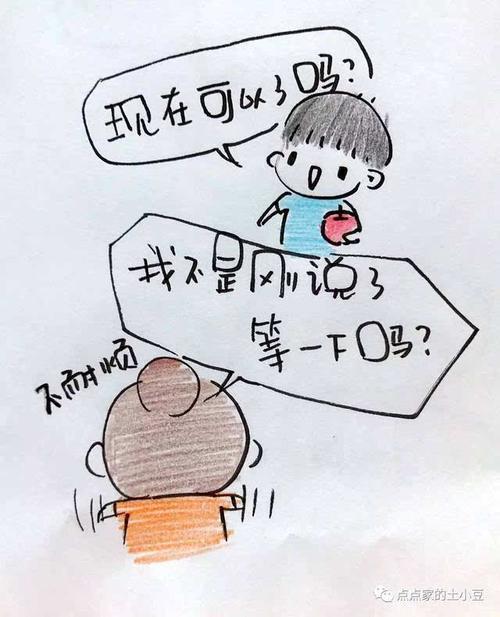 现在可以了吗?
我不是刚说了
等一下吗?
不耐烦
点点家的土小豆